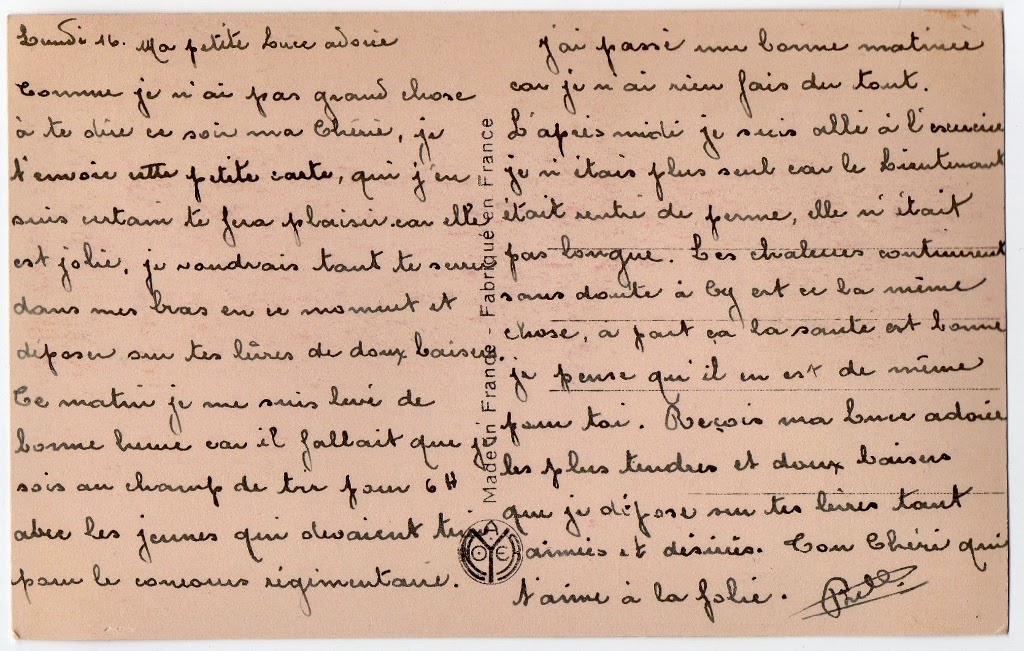 Lundi 16. Ma petite Luce adorée
Comme je n'ai pas grand chose
à te dire ce soir ma Chérie, je
t'envoie cette petite carte, qui j'en
suis certain te fera plaisir car elle
est jolie, je voudrais tant te serrer
dans mes bras en ce moment et
déposer sur tes lèvres de doux baisers.
Ce matin je me suis levé de
bonne heure car il fallait que je
sois au champ de tir pour 6H
avec les jeunes qui devaient tirer
pour le concours régimentaire.
j'ai passé une bonne matinée
car je n'ai rien fais du tout.
L'après midi je suis allé à l'exercice
je n'étais plus seul car le Lieutenant
était rentré de perme, elle n'était
pas longue. Les chaleurs continuent
sans doute à Cy est ce la même
chose, a part ça la santé est bonne
je pense qu'il en est de même
pour toi. Reçois ma Luce adorée
les plus tendres et doux baisers
que je dépose sur tes lèvres tant
aimées et désirées. Ton Chéri qui
t'aime à la folie.
Made in France - Fabriqué en France